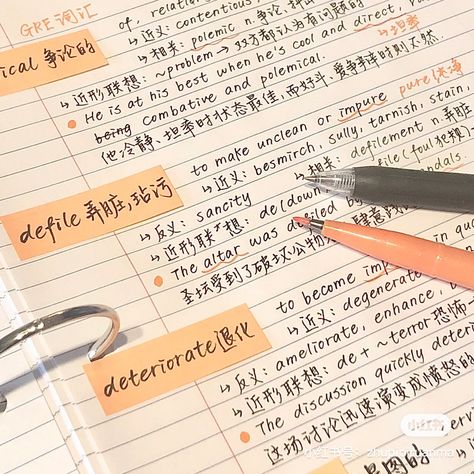 GRE词汇
of, relation
→近义: contentious
→相关: polemic n.争论,
ical 争论的
→近形联想: ~problem → 双方都认为有问题的
He is at his best when he's cool and direct,
being combative and polemical.
→坦率
他冷静、坦率时状态最佳,而好斗、爱争辩时则不然
to make unclean or impure pure纯净
→近义: besmirch, sully, tarnish, stain
→相关: defilement n.弄脏
defile 弄脏,玷污
→反义: sancity
→近形联想: de(down
file(foul
The altar was defiled by
圣坛受到了破坏公物
to become
→近义: degenerate
deteriorate 退化
→反义: ameliorate, enhance,
→近形联想: de+ ~terror恐怖
The discussion quickly deter
这场讨论迅速演变成愤怒的
小红书
小红书号: